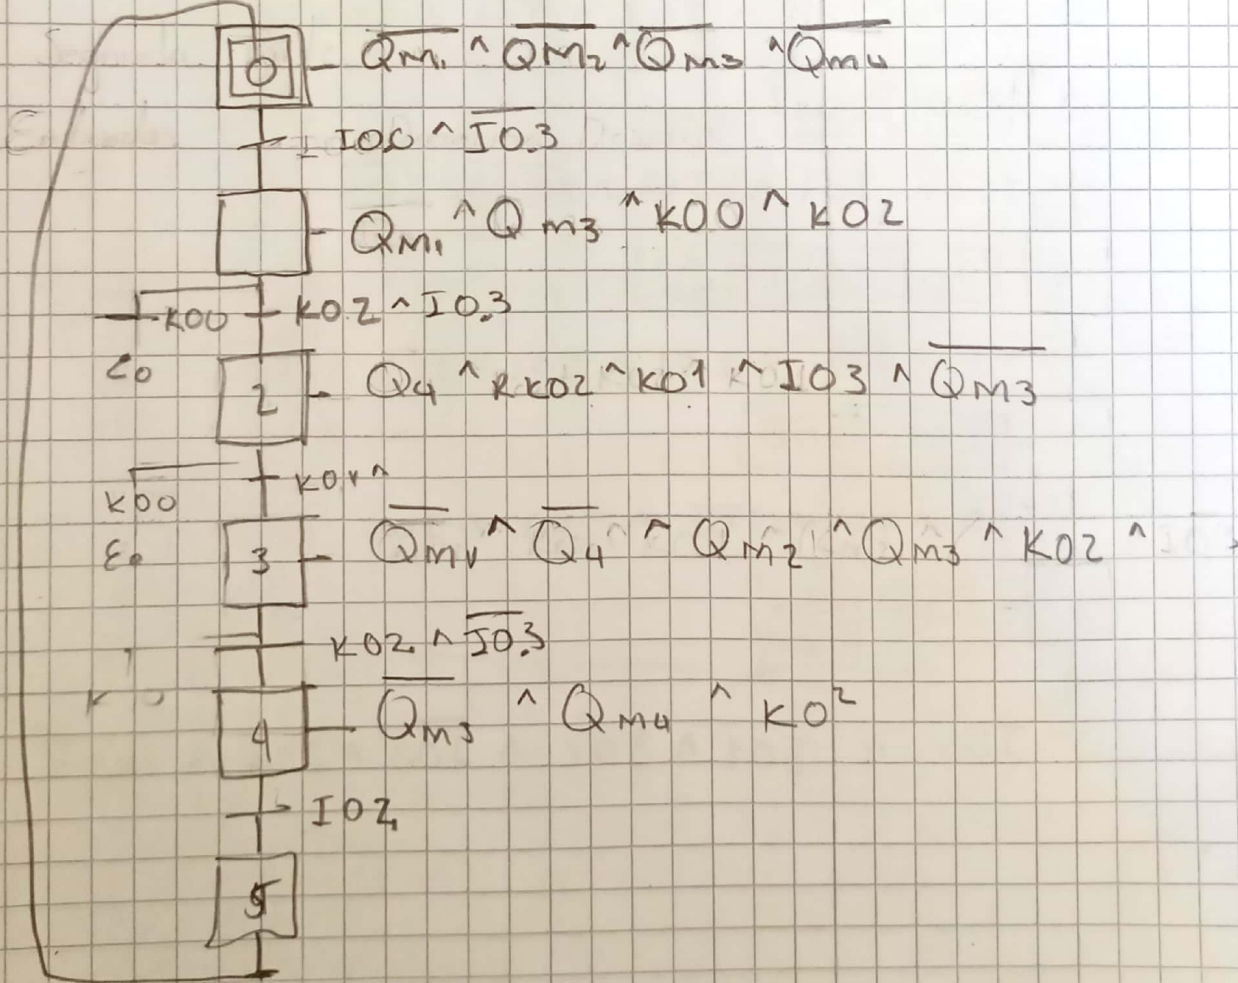 0 Q̅M̅1̅ ^ Q̅M̅2̅ ^ Q̅M̅3̅ ^ Q̅M̅4̅
I00 ^ I̅0̅.3
QM1 ^ QM3 ^ K00 ^ K02
K00 K02 ^ I0.3
E0
2 Q4 ^ RK02 ^ K01 ^ I03 ^ Q̅M̅3̅
K00 ^
E0
3 ^ Q̅4̅ ^ QM2 ^ QM3 ^ K02 ^
K02 ^ I̅0̅.3
4 ^ QM4 ^ K02
I02
5